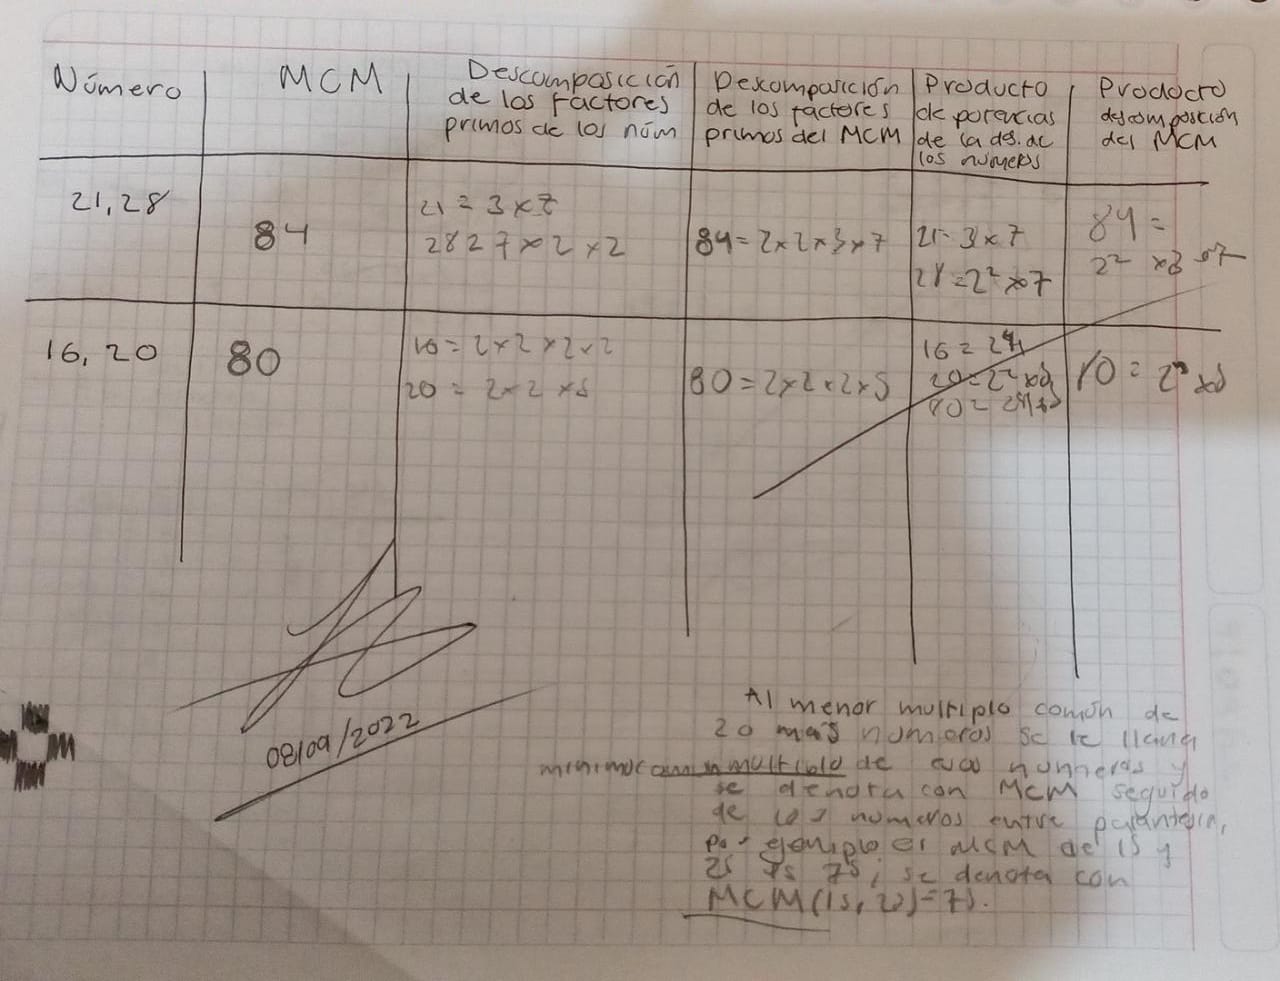 Número
MCM
Descomposición
de los factores
primos de los núm
Descomposición
de los factores
primos del MCM
Producto
de potencias
de la des. de
los números
Producto
descomposición
del MCM
21, 28
84
21 = 3 x 7
28 = 7 x 2 x 2
84 = 2 x 2 x 3 x 7
21 = 3 x 7
28 = 2² x 7
84 =
2² x 3 x 7
16, 20
80
16 = 2 x 2 x 2 x 2
20 = 2 x 2 x 5
80 = 2 x 2 x 2 x 5
16 = 2⁴
20 = 2² x 5
80 = 2⁴ x 5
80 = x 5
08/09/2022
Al menor multiplo común de
2 o más numeros se le llama
minimo comun multiplo de esos numeros y
se denota con MCM seguido
de los numeros entre parantesis,
por ejemplo el MCM de 15 y
25 es 75, se denota con
MCM(15, 25)=75.